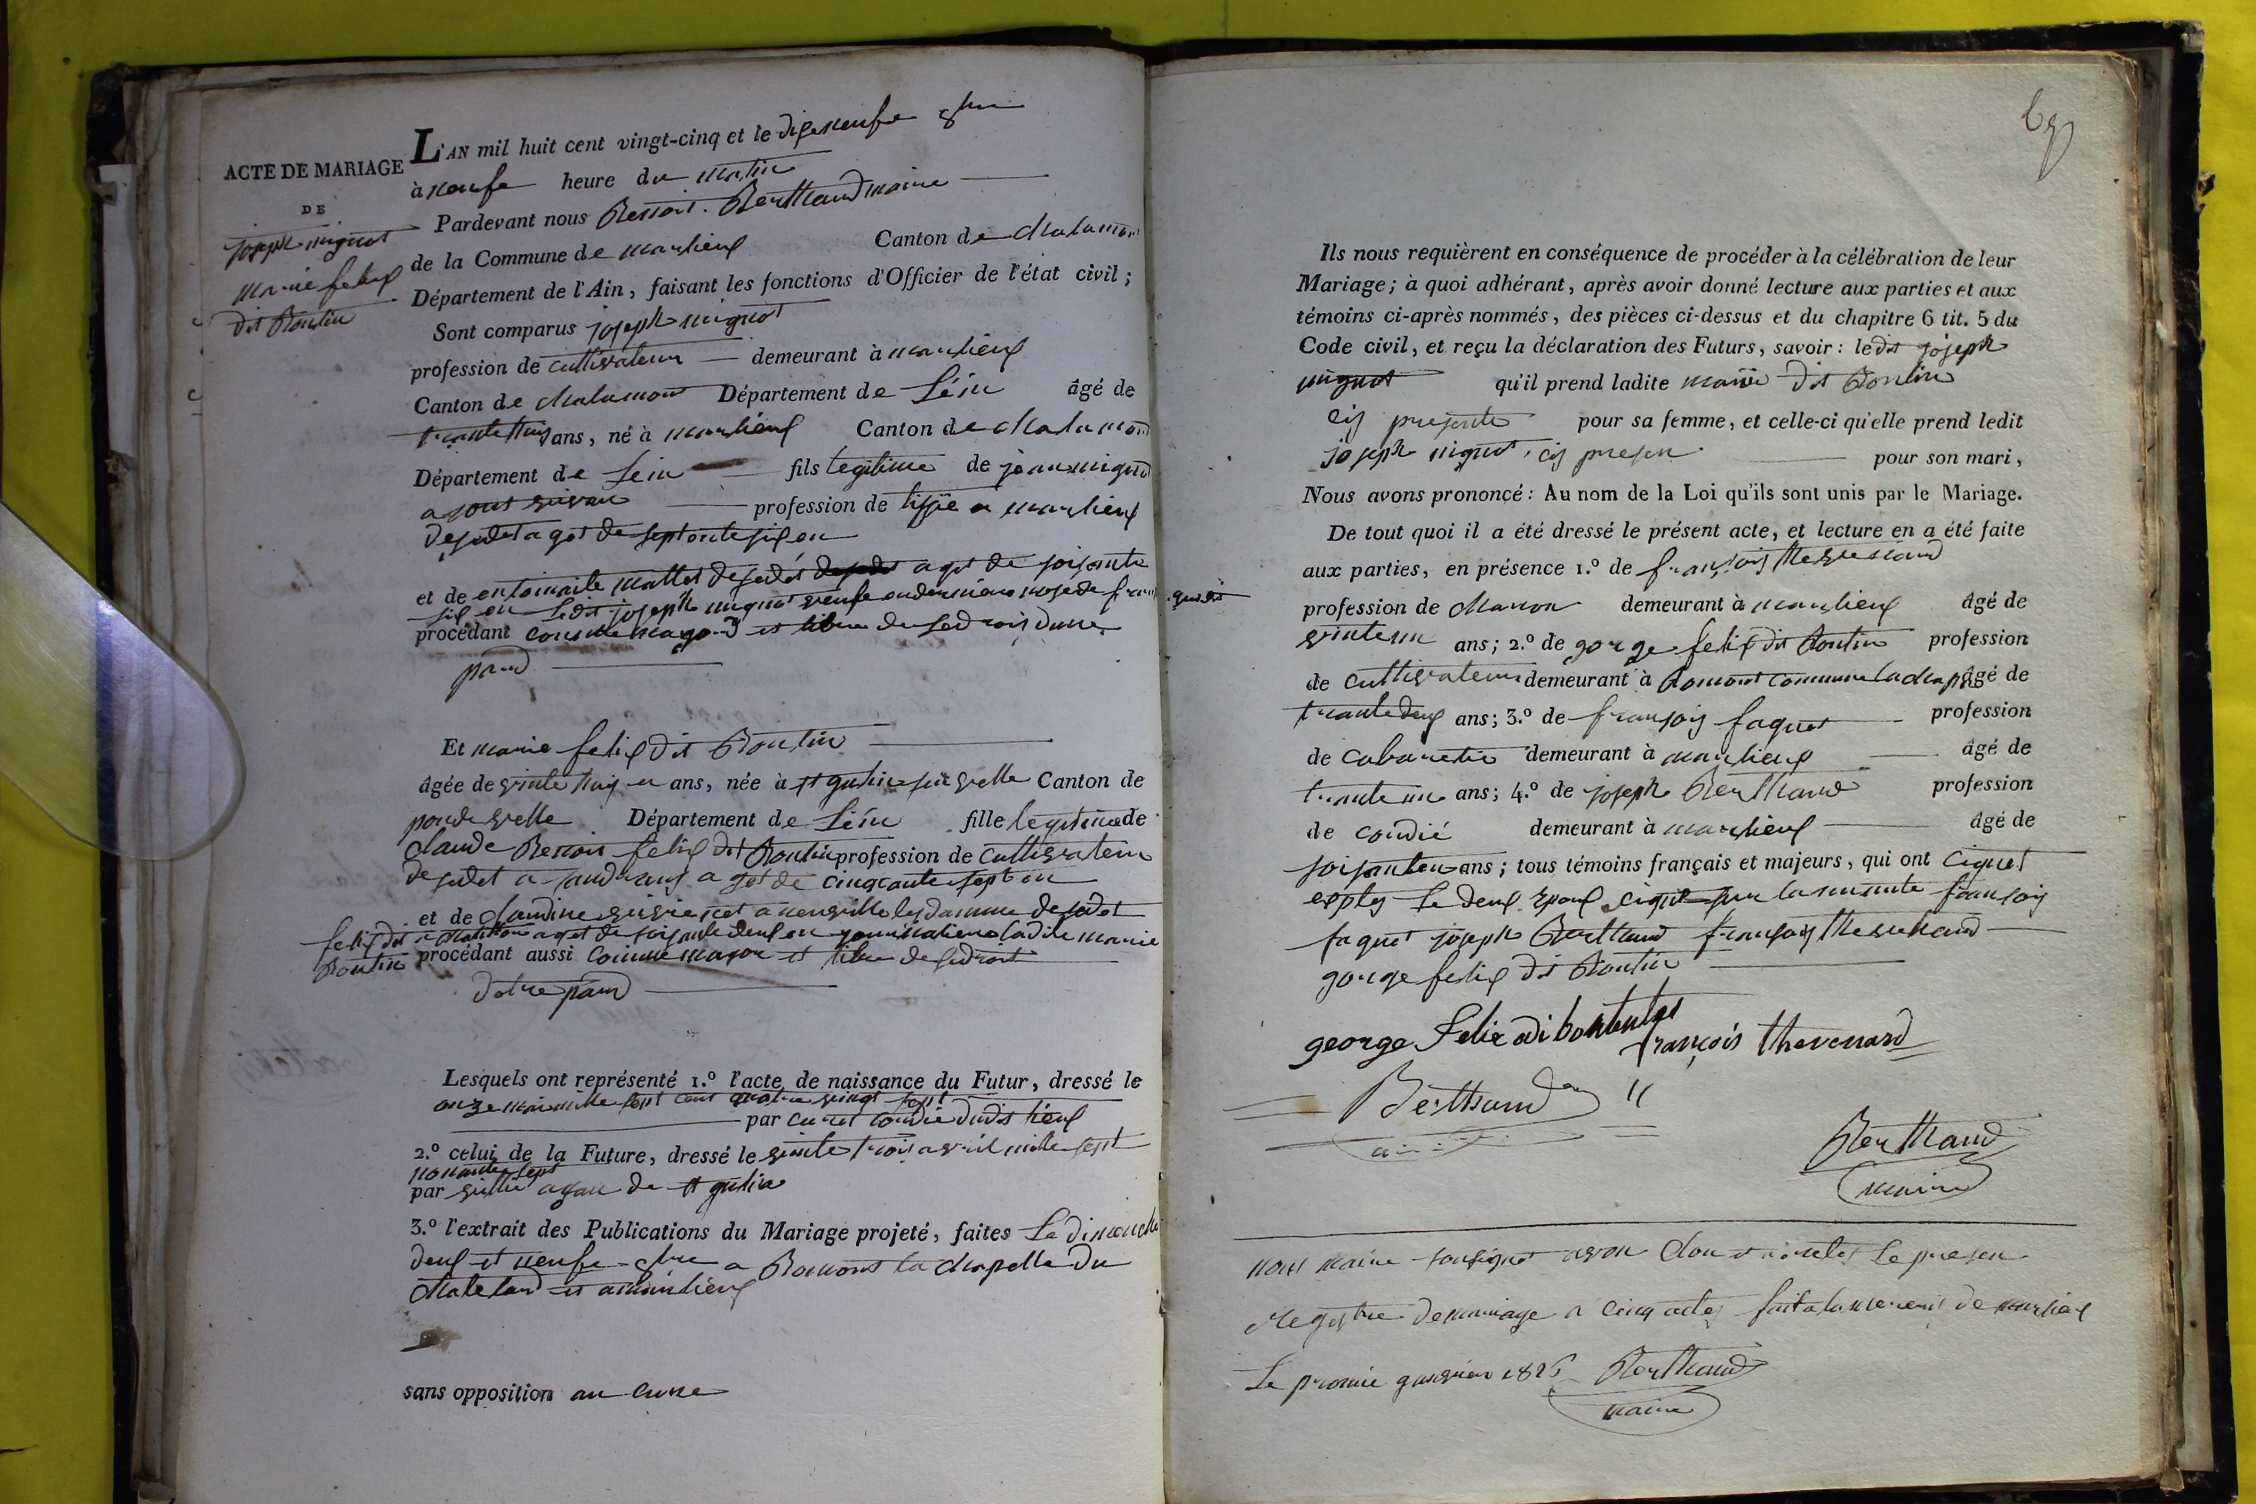 ACTE DE MARIAGE
DE
joseph mignot
marie felix
dit Bontin
L'AN mil huit cent vingt-cinq et le disneufe 8bre
à neufe heure du matin
Pardevant nous Benoit Berthaud maire
de la Commune de marlieux Canton de Chalamon
Département de l'Ain, faisant les fonctions d'Officier de l'état civil;
Sont comparus joseph mignot
profession de cultivateur demeurant à marlieux
Canton de chalamont Département de Léin âgé de
trante huis ans, né à marlieux Canton de chalamon
Département de Lein fils legitime de jean mignot
profession de tissie a marlieux
desedet a get de septente six en
et de mallet desedés agés de soisante
six en Ledit joseph mignot
procédant comme major et libre de sedrois dune
pard
Et marie felix dit Bontin
âgée de vinte huis ans, née à st gulin sur velle Canton de
pondevelle Département de Léin fille legitime de
claude Benoit felix dit Bontin profession de cultivateur
desedet a get de cinqante sept en
et de claudine a neuville les damme desedet
a get de soisante deux en la dite marie
felix dit
Bontin procédant aussi comme major et libre de sedroit
dotre pard
Lesquels ont représenté 1.º l'acte de naissance du Futur, dressé le
onze mai mille sept cent quatre vingt sept
par curet dudit lieux
2.º celui de la Future, dressé le vinte trois avril mille sept
nonante sept
par de st gulin
3.º l'extrait des Publications du Mariage projeté, faites Le dimenche
deux et neufe 8bre a Romans la chapelle du
chatelard et a marlieux
sans opposition au cune
Ils nous requièrent en conséquence de procéder à la célébration de leur
Mariage; à quoi adhérant, après avoir donné lecture aux parties et aux
témoins ci-après nommés, des pièces ci-dessus et du chapitre 6 tit. 5 du
Code civil, et reçu la déclaration des Futurs, savoir: ledit joseph
mignot qu'il prend ladite marie dit Bontin
cij presente pour sa femme, et celle-ci qu'elle prend ledit
joseph mignot cij presen pour son mari,
Nous avons prononcé: Au nom de la Loi qu'ils sont unis par le Mariage.
De tout quoi il a été dressé le présent acte, et lecture en a été faite
aux parties, en présence 1.º de fransois thevenard
profession de Masson demeurant à marlieux âgé de
vinteun ans; 2.º de gorge felix dit Bontin profession
de cultivateur demeurant à Romans commune âgé de
trante deux ans; 3.º de fransois faquet profession
de cabaretie demeurant à marlieux âgé de
trante un ans; 4.º de joseph Berthaud profession
de demeurant à marlieux âgé de
soisante ans; tous témoins français et majeurs, qui ont ciguet
le deux epoux sur la minute fransois
faquet joseph Berthaud fransois thevenard
gorge felix dit Bontin
george Felix françois thevenard
Berthaud
Berthaud
maire
nous maire avon clou et aretes le presen
regystre de mariage a cinq actes fait a la mererie de marlieux
Le promie 1826 Berthaud
maire